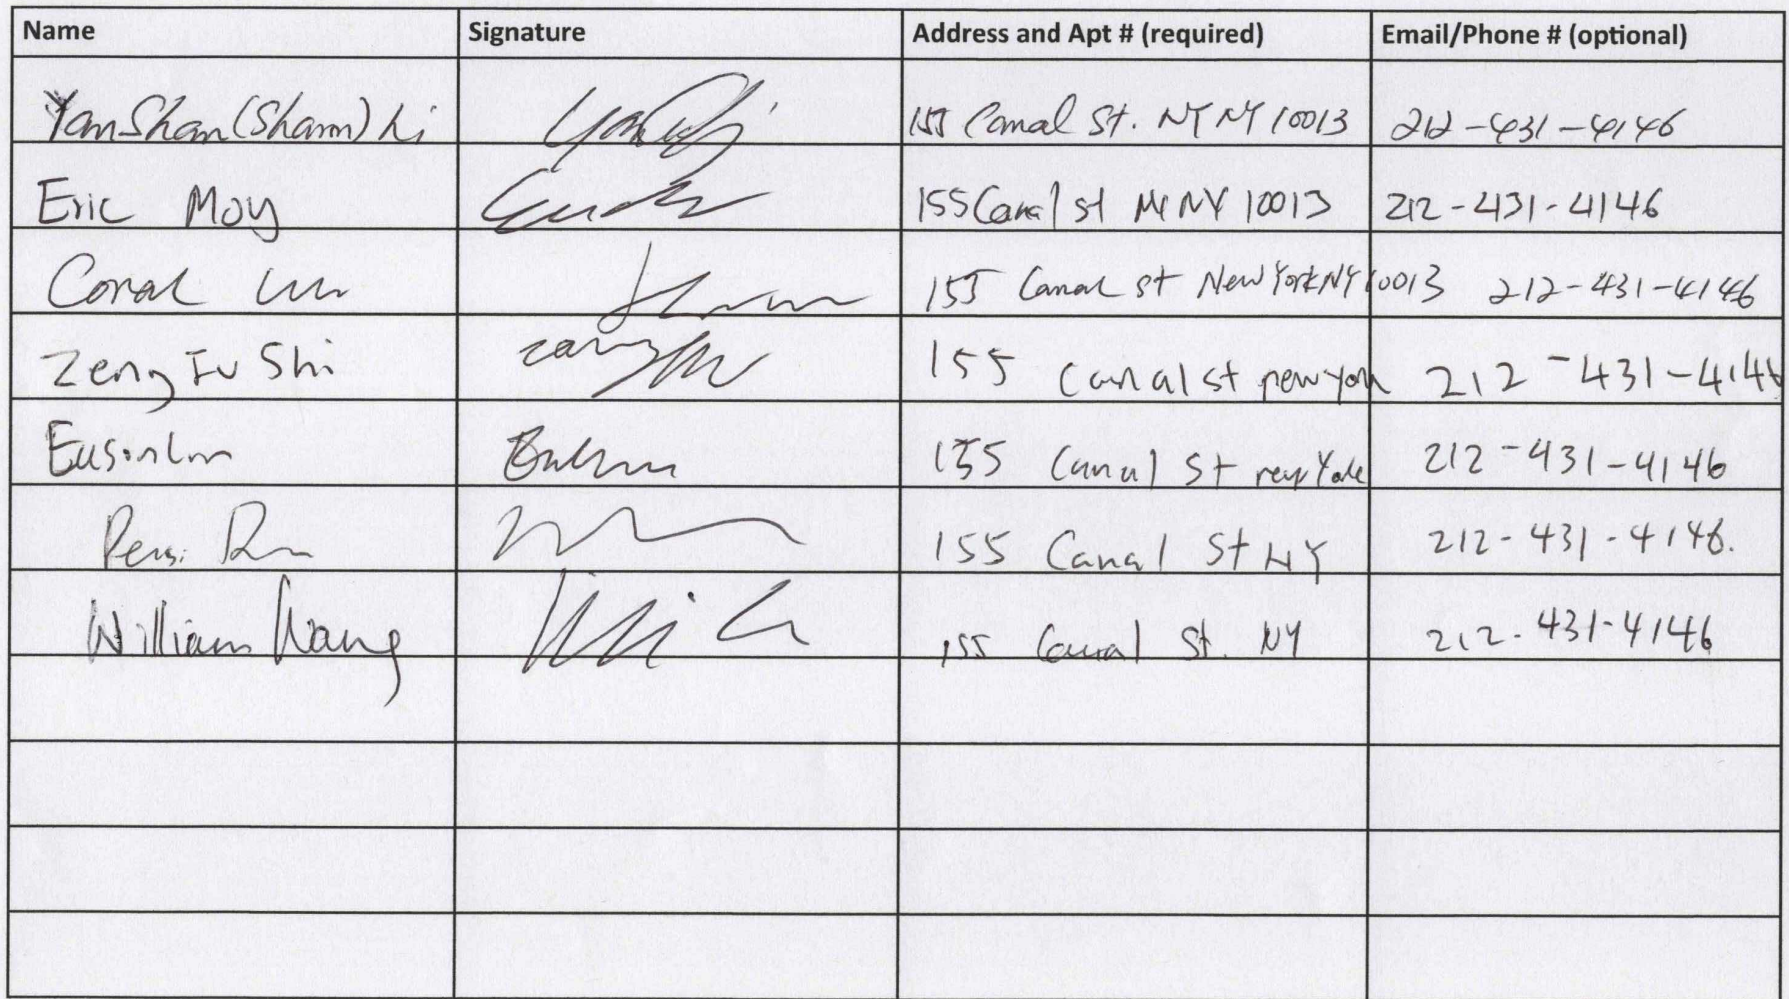 Name Signature Address and Apt # (required) Email/Phone # (optional)
YanShan(Shann) Li 155 Canal St. NY NY 10013 212-431-4146
Eric Moy 155 Canal st NY NY 10013 212-431-4146
Coral 155 Canal st New York NY 10013 212-431-4146
Zeng Fu Shi 155 Canal st new york 212-431-4146
155 Canal St new York 212-431-4146
155 Canal St NY 212-431-4146.
William Wang 155 Canal St. NY 212-431-4146